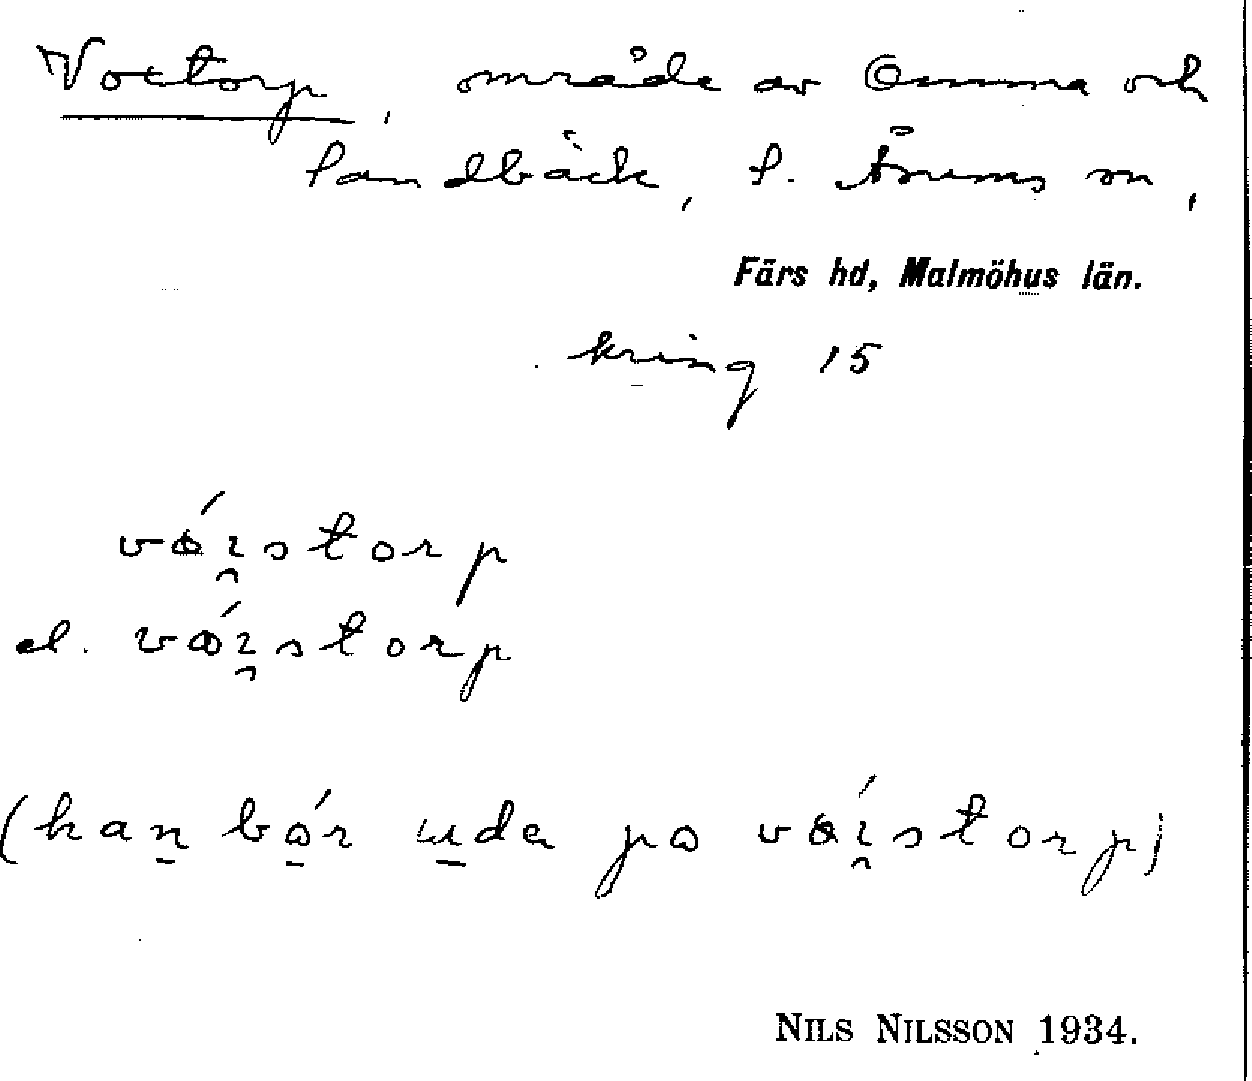 Voctorp, område av Ömma och
Sandbäck, S. Åsums sn,
Färs hd, Malmöhus län.
kring 15
vóɪ̯storp
el. vóɪ̯storp
(han bór uda po vóɪ̯storp)
NILS NILSSON 1934.